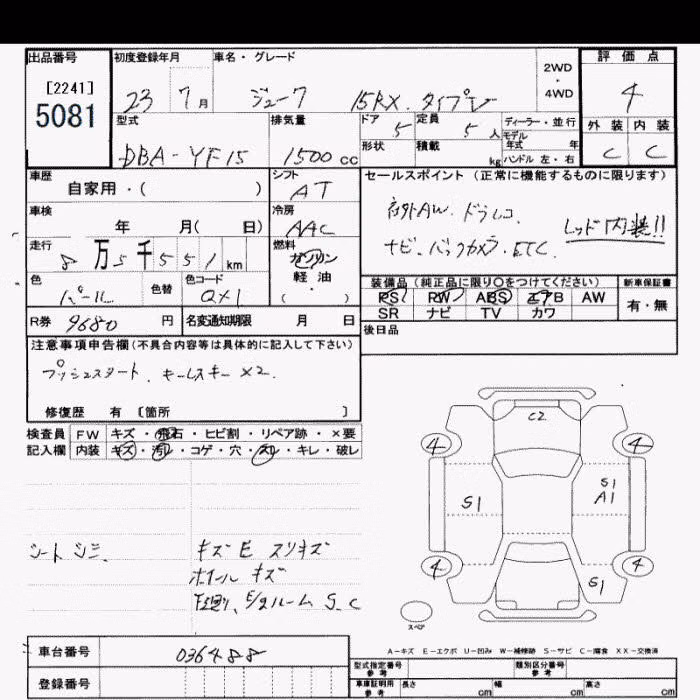 出品番号 初度登録年月 車名・グレード 2WD・4WD 評価点
[2241] 5081 23 7月 ジューク 15RX.タイプV 4
型式 排気量 ドア 定員 ディーラー・並行 外装 内装
DBA-YF15 1500cc 5 5人 モデル年式 年 C C
形状 積載 kg ハンドル 左・右
車歴 シフト セールスポイント (正常に機能するものに限ります)
自家用・( ) AT
車検 冷房 社外AW. ドラレコ レッド内装!!
年 月( 日) AAC ナビ.バックカメラ.ETC.
走行 燃料
8万5千551km ガソリン 軽油・( )
色 色替 色コード 装備品 (純正品に限り○をつけてください) 新車保証書
パール QX1 PS PW ABS エアB AW 有・無
SR ナビ TV カワ
R券 9680円 名変通知期限 月 日 後日品
注意事項申告欄(不具合内容等は具体的に記入して下さい)
プッシュスタート、キーレスキー×2.
修復歴 有 [箇所 ]
検査員 FW キズ・飛石・ヒビ割・リペア跡・×要
記入欄 内装 キズ・汚レ・コゲ・穴・スレ・キレ・破レ
C2
4 4
S1 S1 A1
4 4
S1
シート シミ、 キズE スリキズ
ホイール キズ
下廻り、E/gルーム S.C
スペア
A-キズ E-エクボ U-凹み W-補修跡 S-サビ C-腐食 XX-交換済
車台番号 036488 型式指定番号 参考 類別区分番号 参考
登録番号 車庫証明用 参考 長さ cm 幅 cm 高さ cm